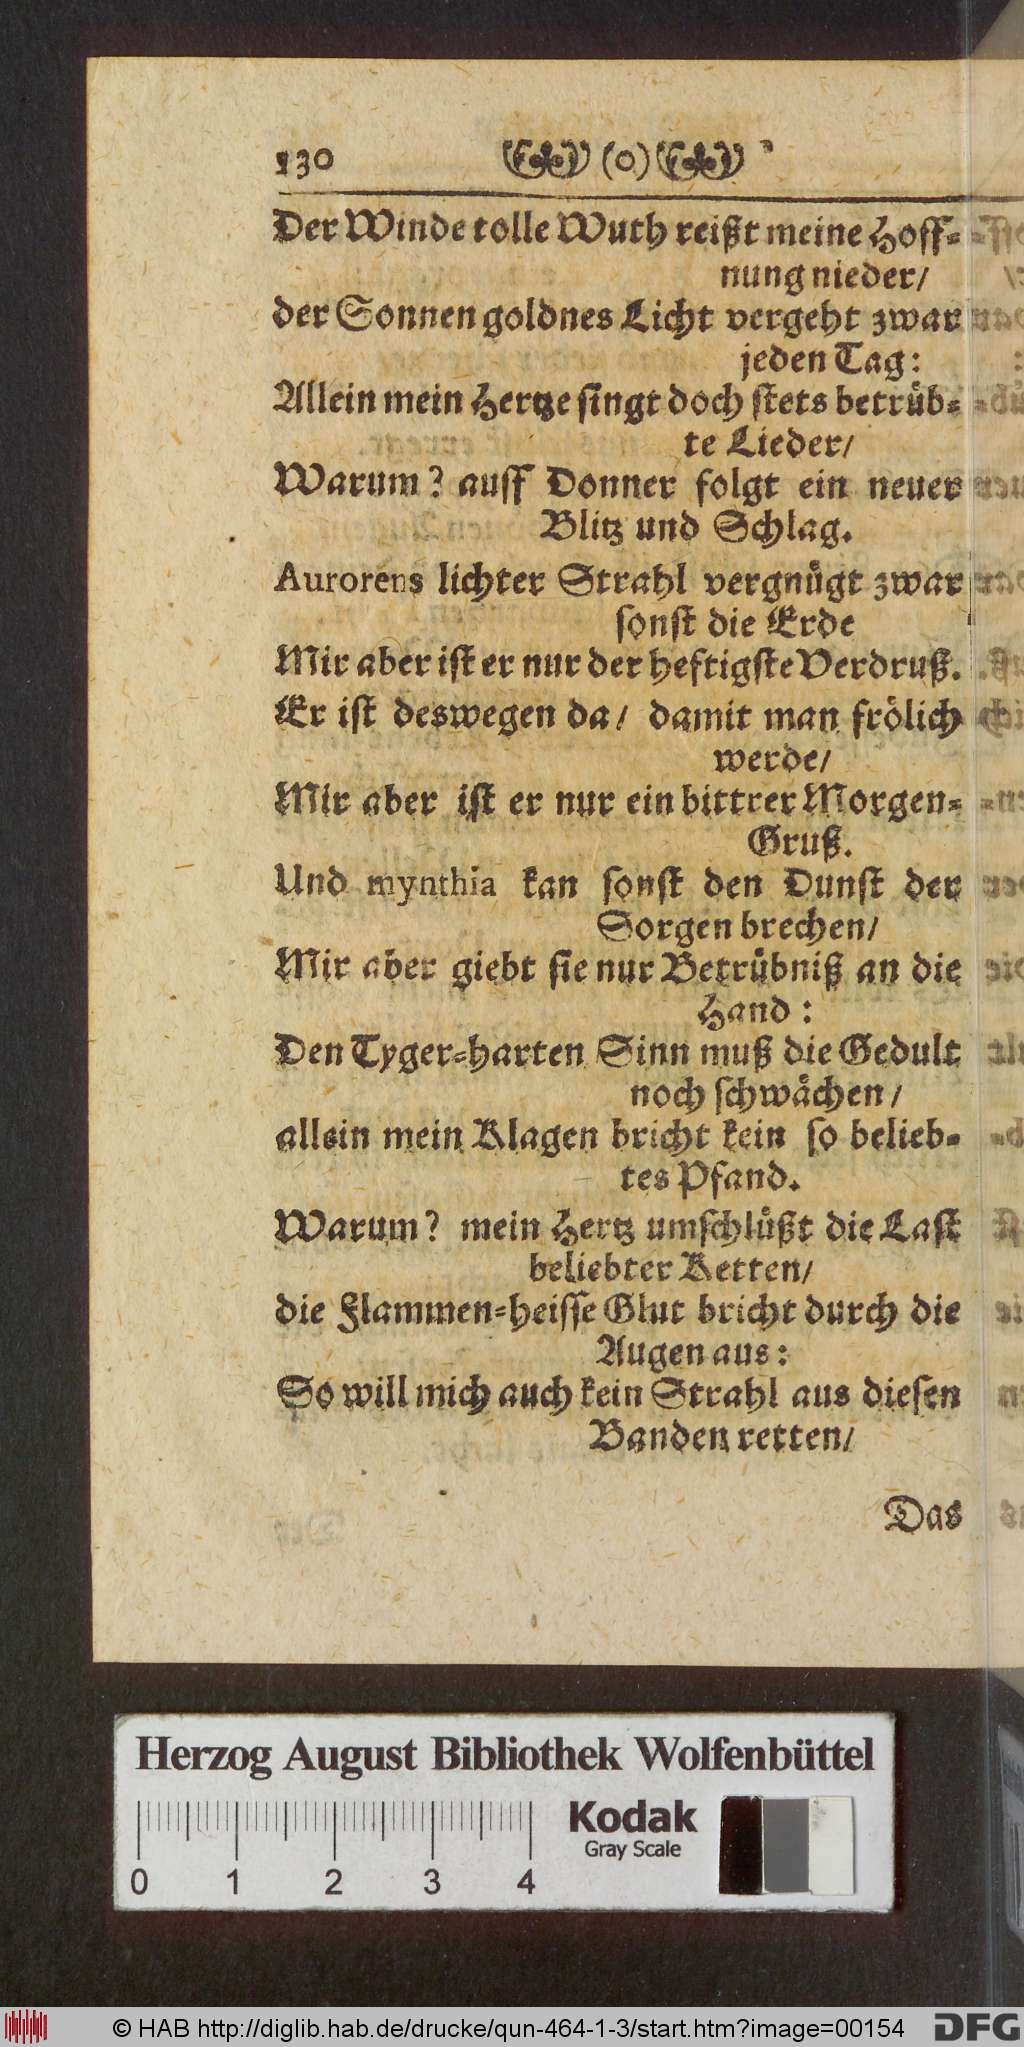 130 (o)
Der Winde tolle Wuth reißt meine Hoff-
nung nieder/
der Sonnen goldnes Licht vergeht zwar
jeden Tag:
Allein mein Hertze singt doch stets betrüb-
te Lieder/
Warum? auff Donner folgt ein neuer
Blitz und Schlag.
Aurorens lichter Strahl vergnügt zwar
sonst die Erde
Mir aber ist er nur der heftigste Verdruß.
Er ist deswegen da/ damit man frölich
werde/
Mir aber ist er nur ein bittrer Morgen-
Gruß.
Und mynthia kan sonst den Dunst der
Sorgen brechen/
Mir aber giebt sie nur Betrübniß an die
Hand:
Den Tyger-harten Sinn muß die Gedult
noch schwächen/
allein mein Klagen bricht kein so belieb-
tes Pfand.
Warum? mein Hertz umschlüßt die Last
beliebter Ketten/
die Flammen-heisse Glut bricht durch die
Augen aus:
So will mich auch kein Strahl aus diesen
Banden retten/
Das
Herzog August Bibliothek Wolfenbüttel
0 1 2 3 4
Kodak
Gray Scale
© HAB http://diglib.hab.de/drucke/qun-464-1-3/start.htm?image=00154
DFG